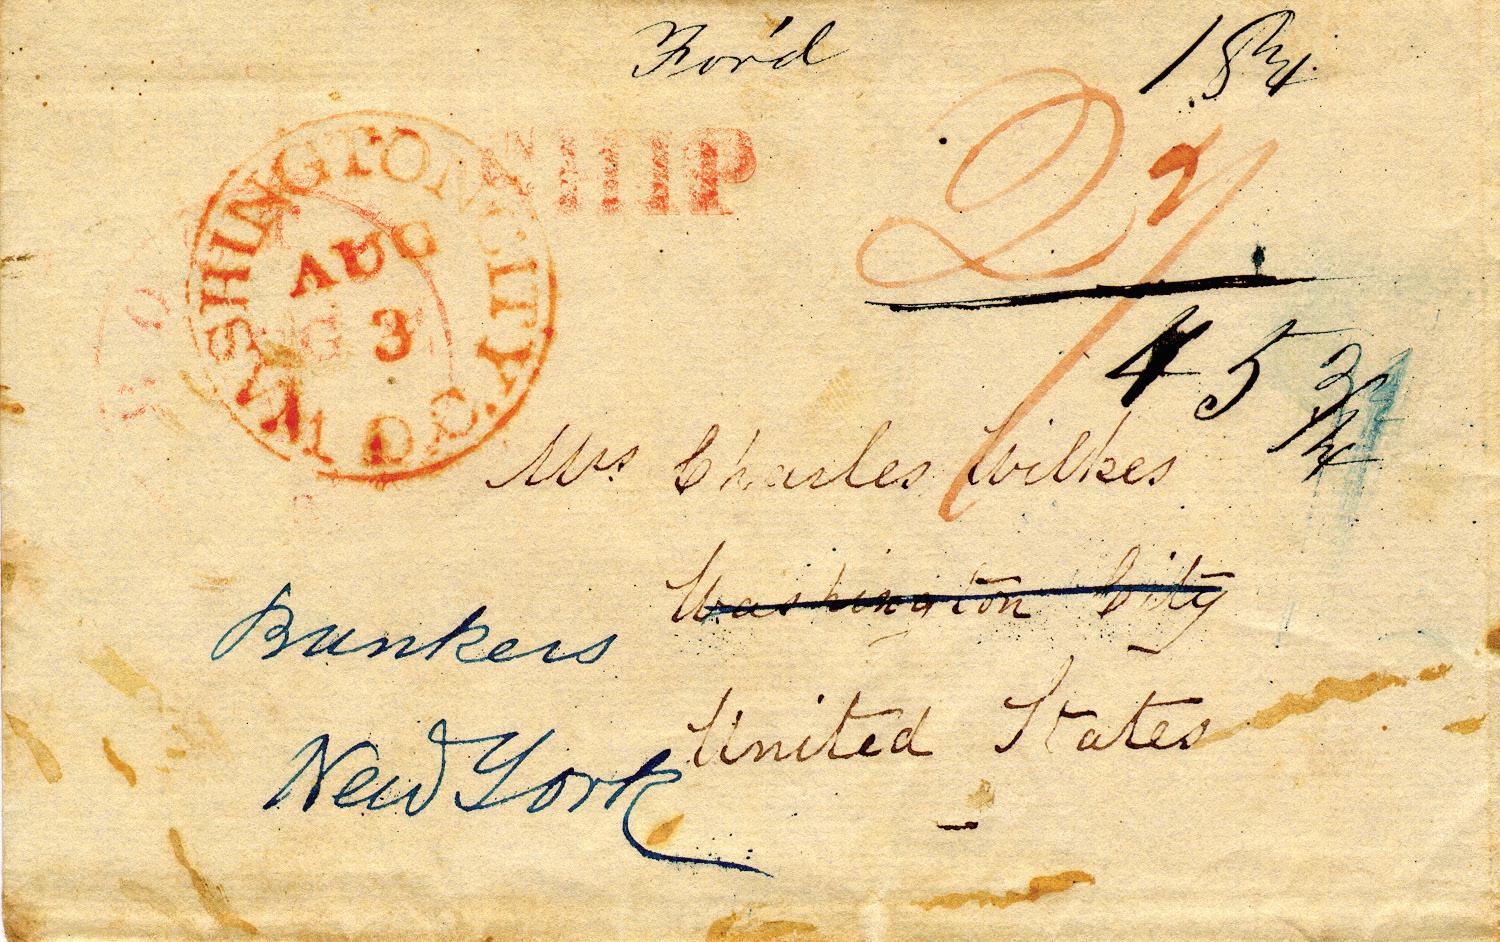 For'd
18 3/4
SHIP
27
WASHINGTON CITY. D.C.
AUG
3
45 3/4
Mrs Charles Wilkes
Washington City
United States
Bunkers
New York